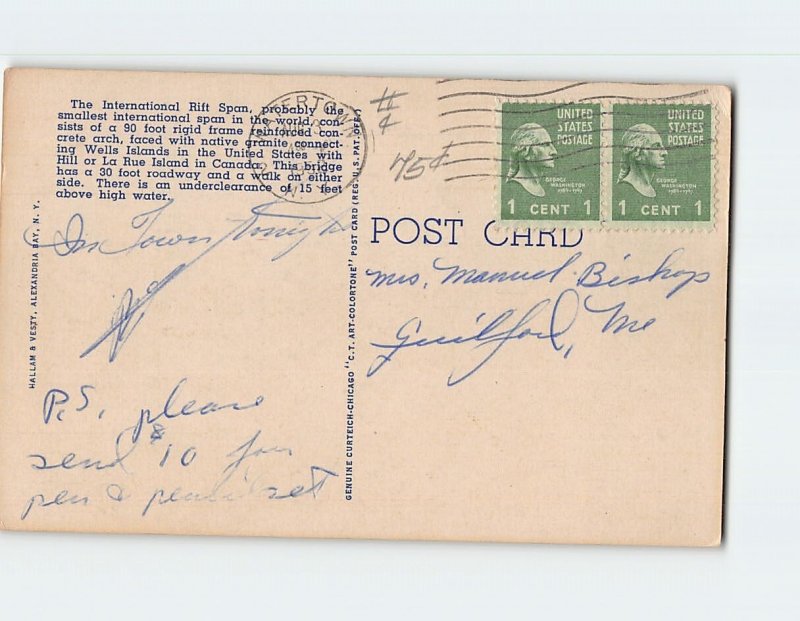 The International Rift Span, probably the
smallest international span in the world, con-
sists of a 90 foot rigid frame reinforced con-
crete arch, faced with native granite connect-
ing Wells Islands in the United States with
Hill or La Rue Island in Canada. This bridge
has a 30 foot roadway and a walk on either
side. There is an underclearance of 15 feet
above high water.
In Town tonight
P.S. please
send $10 for
pen & pencil set
HALLAM & VESTY, ALEXANDRIA BAY, N. Y.
GENUINE CURTEICH-CHICAGO "C. T. ART-COLORTONE" POST CARD (REG. U. S. PAT. OFF.)
WATERTOWN
N.Y.
75¢
UNITED
STATES
POSTAGE
GEORGE
WASHINGTON
1789-1797
1 CENT 1
UNITED
STATES
POSTAGE
GEORGE
WASHINGTON
1789-1797
1 CENT 1
POST CARD
Mrs. Manuel Bishop
Guilford, Me